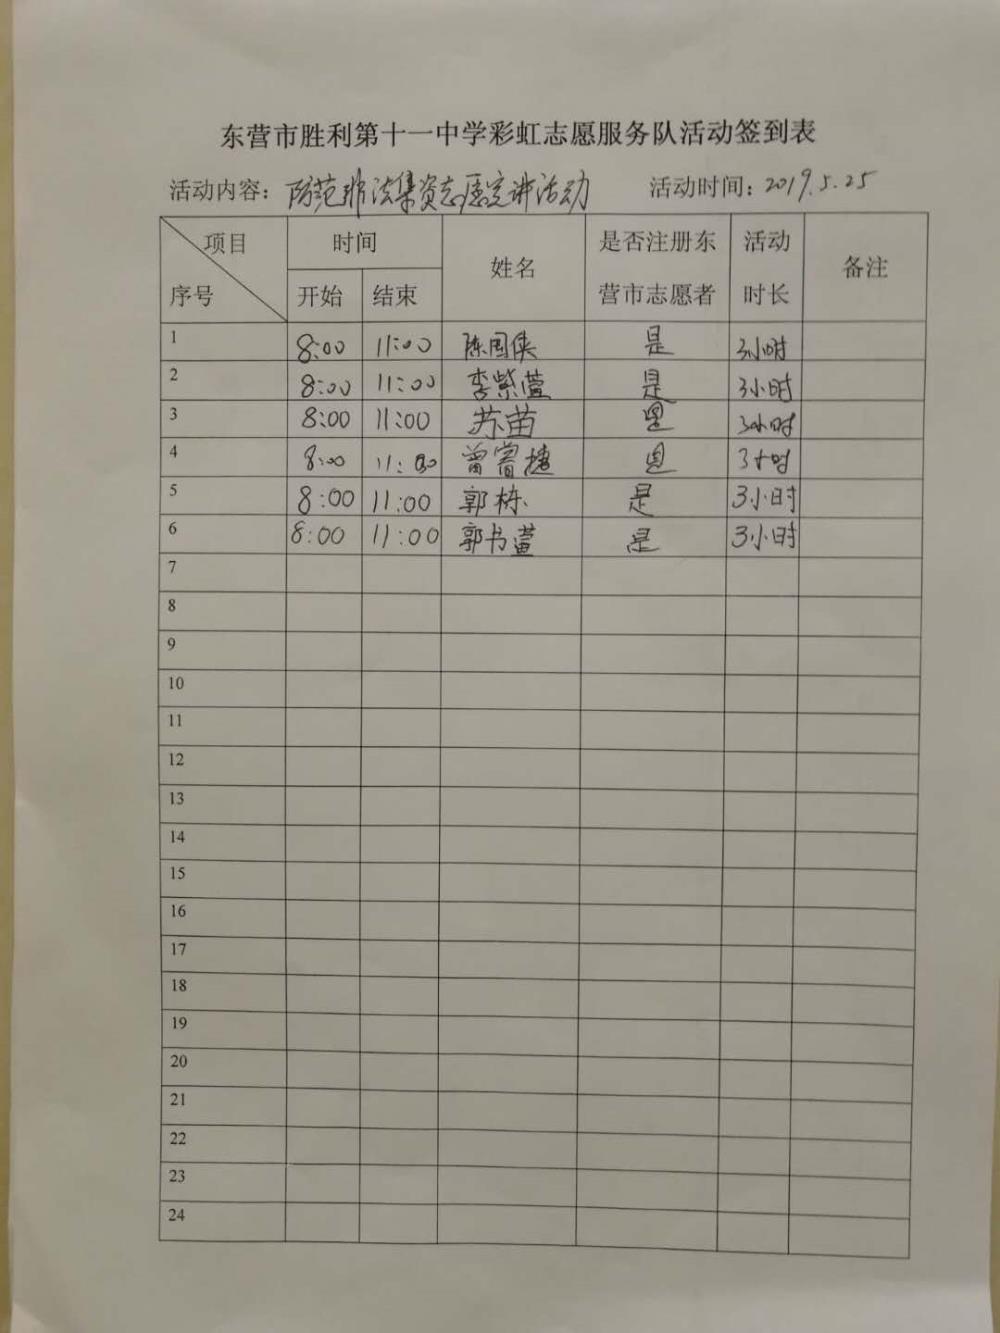 东营市胜利第十一中学彩虹志愿服务队活动签到表
活动内容：防范非法集资志愿宣讲活动 活动时间：2019.5.25
项目 时间 姓名 是否注册东营市志愿者 活动时长 备注
序号 开始 结束
1 8:00 11:00 陈国侠 是 3小时
2 8:00 11:00 李紫萱 是 3小时
3 8:00 11:00 苏苗 是 3小时
4 8:00 11:00 是 3小时
5 8:00 11:00 郭栋 是 3小时
6 8:00 11:00 郭书萱 是 3小时
7
8
9
10
11
12
13
14
15
16
17
18
19
20
21
22
23
24